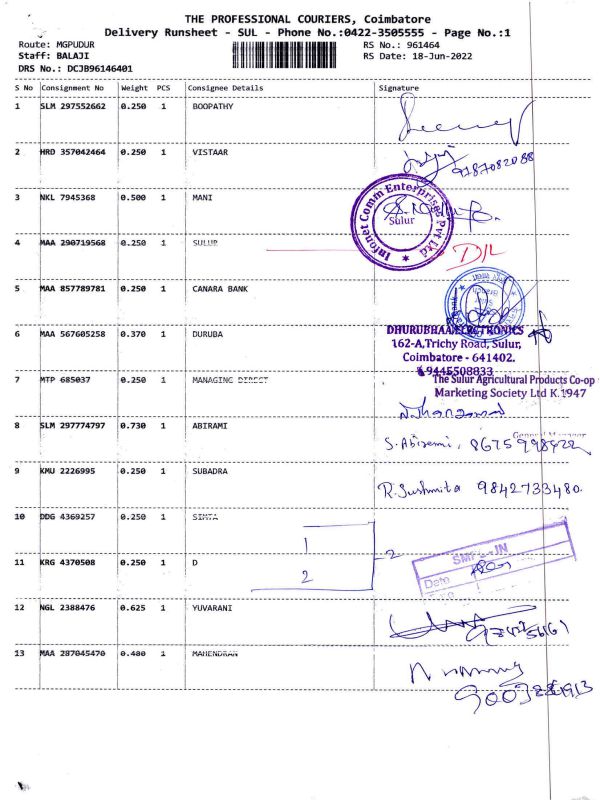 THE PROFESSIONAL COURIERS, Coimbatore
Delivery Runsheet - SUL - Phone No.:0422-3505555 - Page No.:1
Route: MGPUDUR
RS No.: 961464
Staff: BALAJI
RS Date: 18-Jun-2022
DRS No.: DCJB96146401
S No Consignment No Weight PCS Consignee Details Signature
1 SLM 297552662 0.250 1 BOOPATHY
2 HRD 357042464 0.250 1 VISTAAR
9787082088
3 NKL 7945368 0.500 1 MANI
Infonet Comm Enterprises Pvt Ltd
Sulur
4 MAA 290719568 0.250 1 SULUR
D/L
5 MAA 857789781 0.250 1 CANARA BANK
6 MAA 567605258 0.370 1 DURUBA
DHURUBHAA ELECTRONICS
162-A,Trichy Road, Sulur,
Coimbatore - 641402.
9445508833
7 MTP 685037 0.250 1 MANAGING DIRECT
The Sulur Agricultural Products Co-op
Marketing Society Ltd K.1947
8 SLM 297774797 0.730 1 ABIRAMI
General Manager
S. Abirami, 8675998422
9 KMU 2226995 0.250 1 SUBADRA
R. Sushmita 9842733480.
10 DDG 4369257 0.250 1 SIMTA
1
11 KRG 4370508 0.250 1 D
2
2
Date
12 NGL 2388476 0.625 1 YUVARANI
13 MAA 287045470 0.480 1 MAHENDRAN